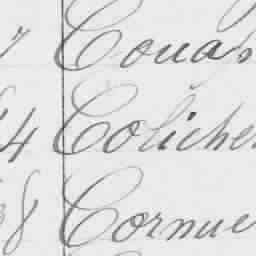 7 Couap
4 Colicher
8 Cornue